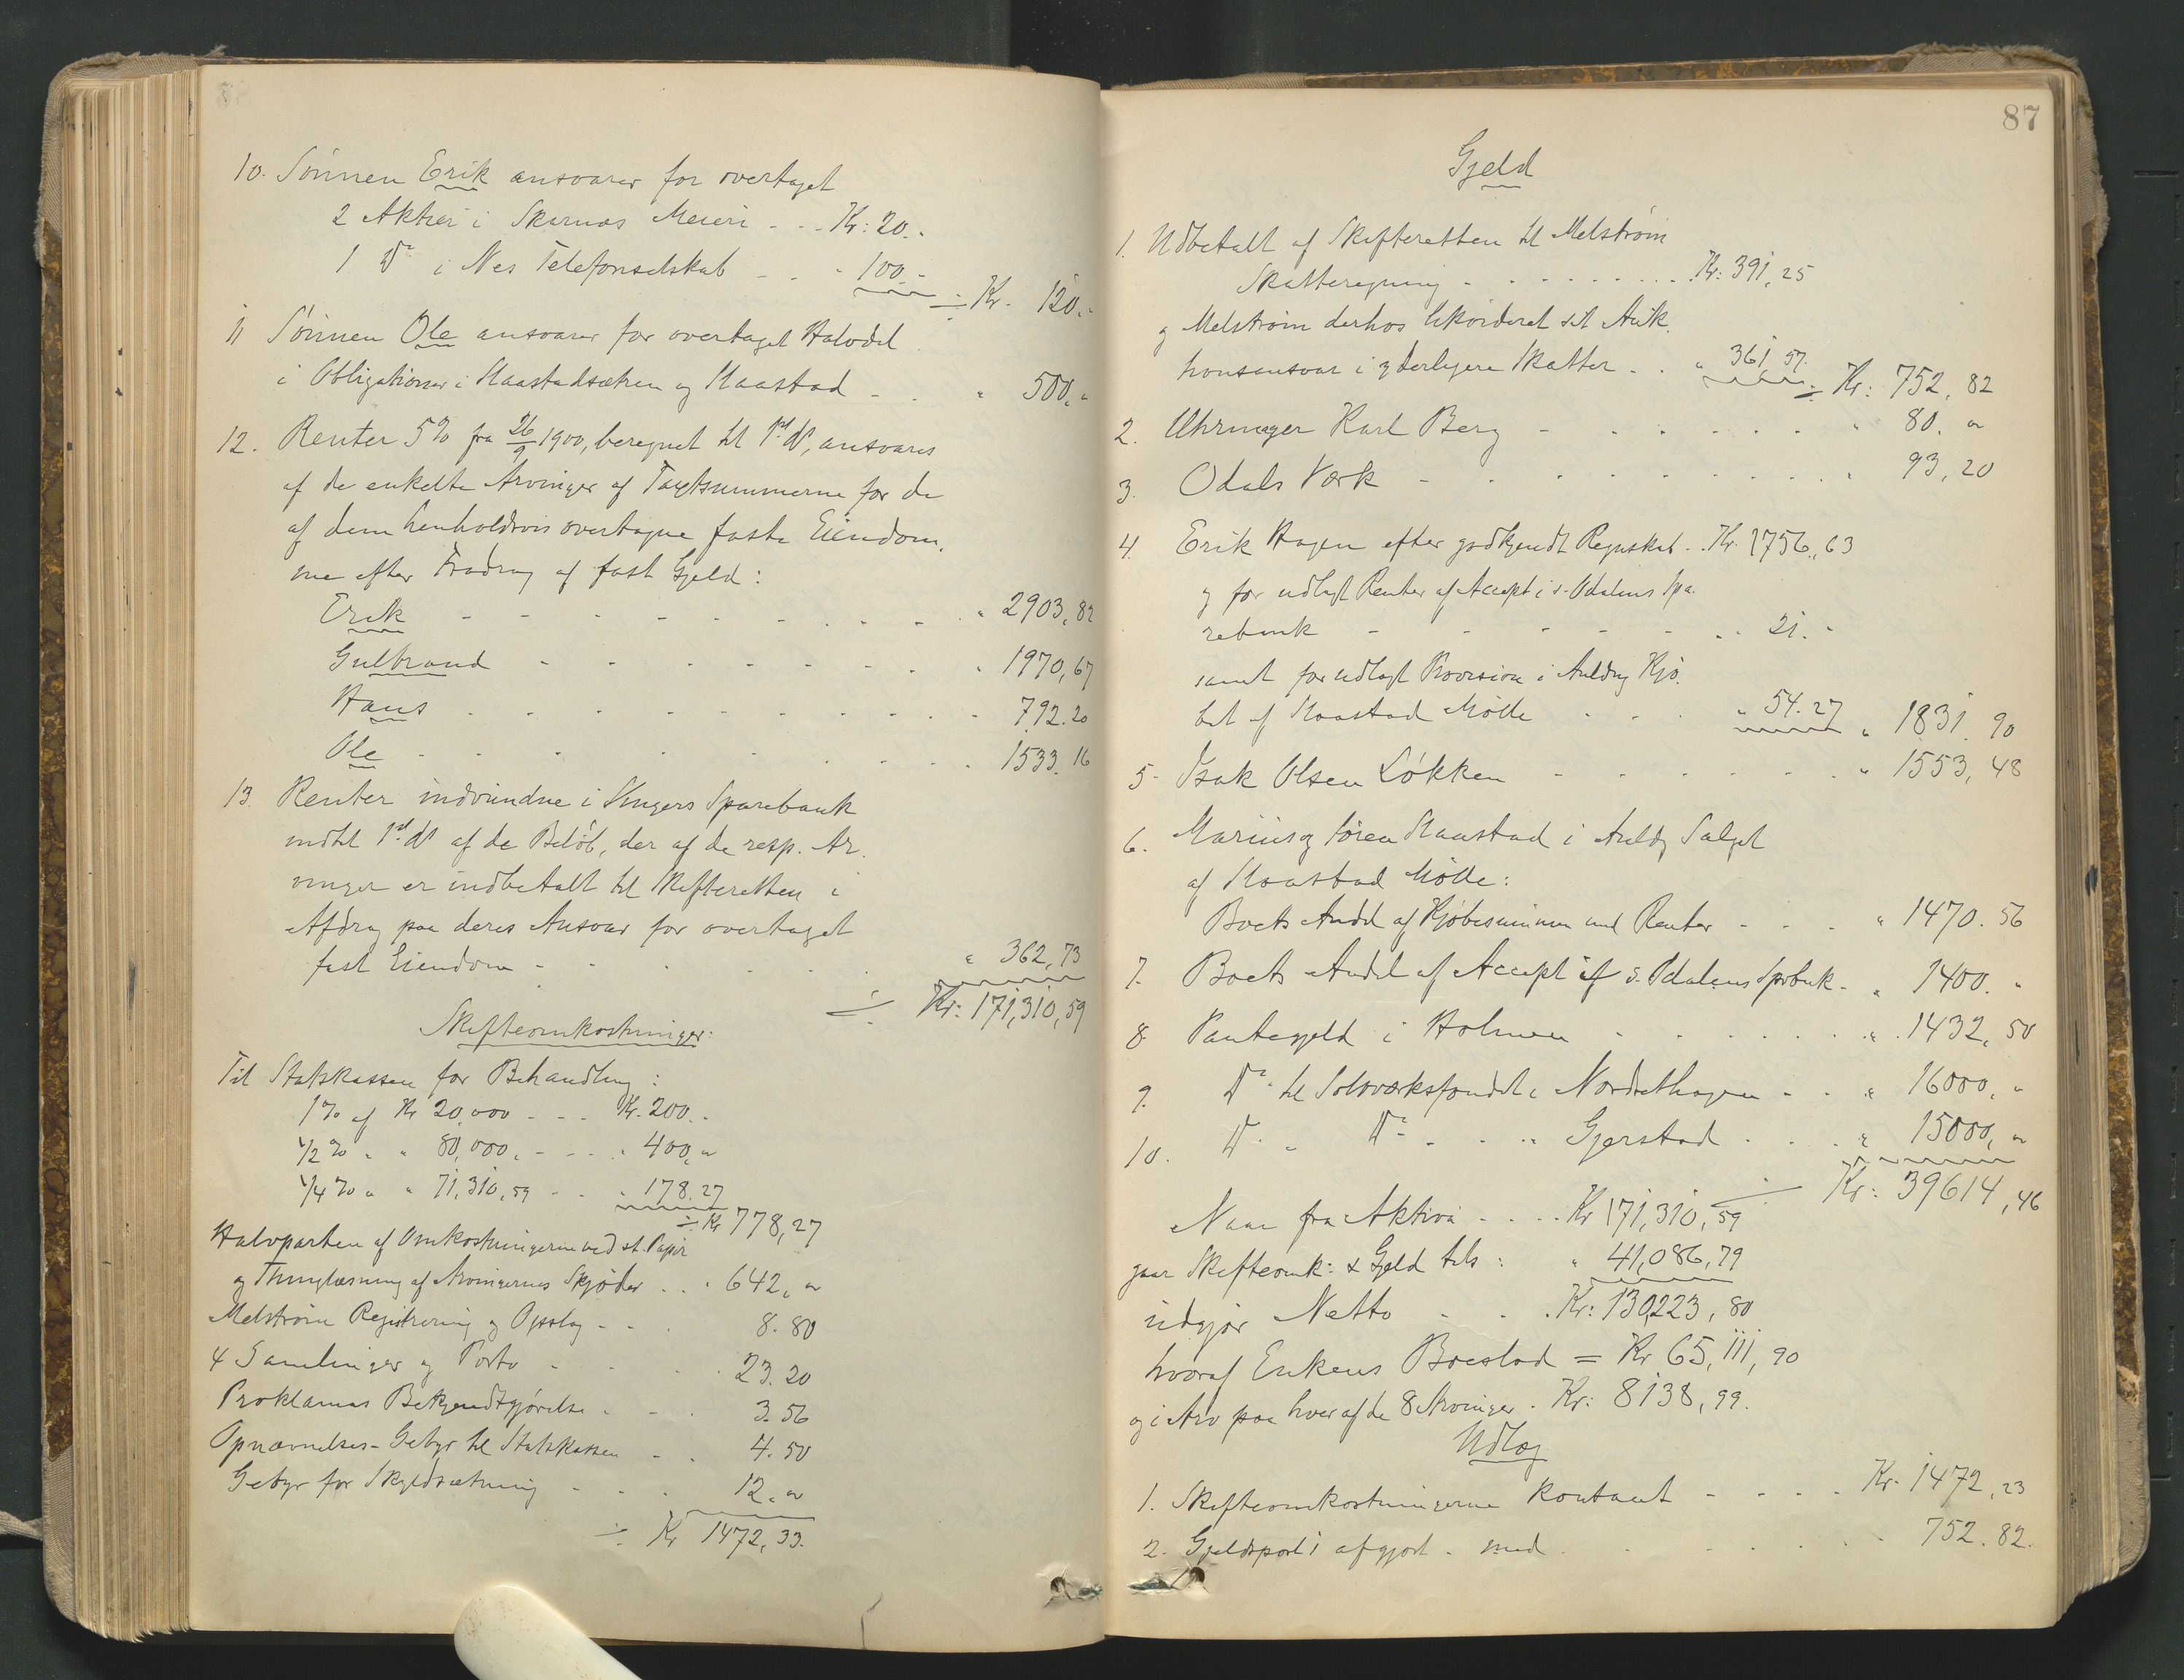 10. Sønnen Erik ansvarer for overtaget
2 Aktier i Skarnæs Meieri - - - Kr: 20. -
1 Do i Nes Telefonselskab - - - 100. -
÷ Kr. 120. -
11 Sønnen Ole ansvarer for overtaget Halvdel
i Obligationer i Kaastadsætren og Kaastad - - " 500. "
12. Renter 5% fra 26/9 1900, beregnet til 1ste ds, ansvares
af de enkelte Arvinger af Taxtsummerne for de
af dem henholdsvis overtagne faste Eiendom,
me efter Fradrag af fast Gjeld:
Erik - - - - - " 2903,82
Gulbrand - - - - - " 1970,67
Hans - - - - - 792.20
Ole - - - - - 1533.16
13. Renter indvundne i Vingers Sparebank
indtil 1ste ds af de Beløb, der af de resp. Ar,
vinger er indbetalt til Skifteretten i
Afdrag paa deres Ansvar for overtaget
fast Eiendom - - - - " 362,73
÷ Kr: 171,310,59
Skifteomkostninger:
Til Statskassen for Behandling:
1% af Kr 20,000 - - - Kr. 200. -
1/2 % " " 80,000. - - - " 400. "
1/4 % " " 71,310,59 - - " 178.27
÷ Kr 778,27
Halvparten af Omkostningerne ved st. Papir
og Thinglæsning af Arvingernes Skjøder . . " 642, "
Melstrøm Registrering og Opslag - - 8.80
4 Samlinger og Porto - - - 23.20
Proklamas Bekjendtgjørelse - - - 3.56
Opnævnelses-Gebyr til Statskassen - - 4.50
Gebyr for Skyldsætning - - - 12. "
÷ Kr 1472,33.
87
Gjeld
1. Udbetalt af Skifteretten til Melstrøm
Skatteregning - - - - - Kr: 391,25
og Melstrøm derhos likvideret sit Auk,
tionsansvar i yderligere Skatter . . " 361,57.
÷ Kr: 752,82
2. Uhrmager Karl Berg - - - - - " 80. "
3. Odals Værk - - - - - " 93,20
4. Erik Hagen efter godkjendt Regnskab . . Kr. 1756,63
og for udlagt Renter af Accept i s. Odalens Spa,
rebank - - - - - 21. -
samt for udlagt Provision i Anldng Kjø,
bet af Kaastad Mølle - - - " 54.27 " 1831.90
5. Isak Olsen Løkken - - - - - " 1553,48
6. Marius og Søren Kaastad i Anldg Salget
af Kaastad Mølle:
Boets Andel af Kjøbesummen med Renter - - - " 1470.56
7. Boets Andel af Accept i s. Odalens Sprbnk - " 1400. "
8. Pantegjeld i Holmen - - - - - " 1432,50
9. Do til Sølvværksfondet i Nordsethagen - - " 16000, "
10. Do " Do - . . " Gjerstad . . . " 15000, "
÷ Kr: 39614,46
Naar fra Aktiva - . . . Kr 171,310,59
gaar Skifteomk: & Gjeld tils: " 41,086,79
udgjør Netto - - . Kr: 130,223,80
hvoraf Enkens Boeslod = Kr 65,111,90
og i Arv paa hver af de 8 Arvinger . Kr: 8138,99.
Udlæg
1. Skifteomkostningerne kontant - - - - Kr. 1472,23
2. Gjeldspost 1 afgjort . med . - - - - 752.82.